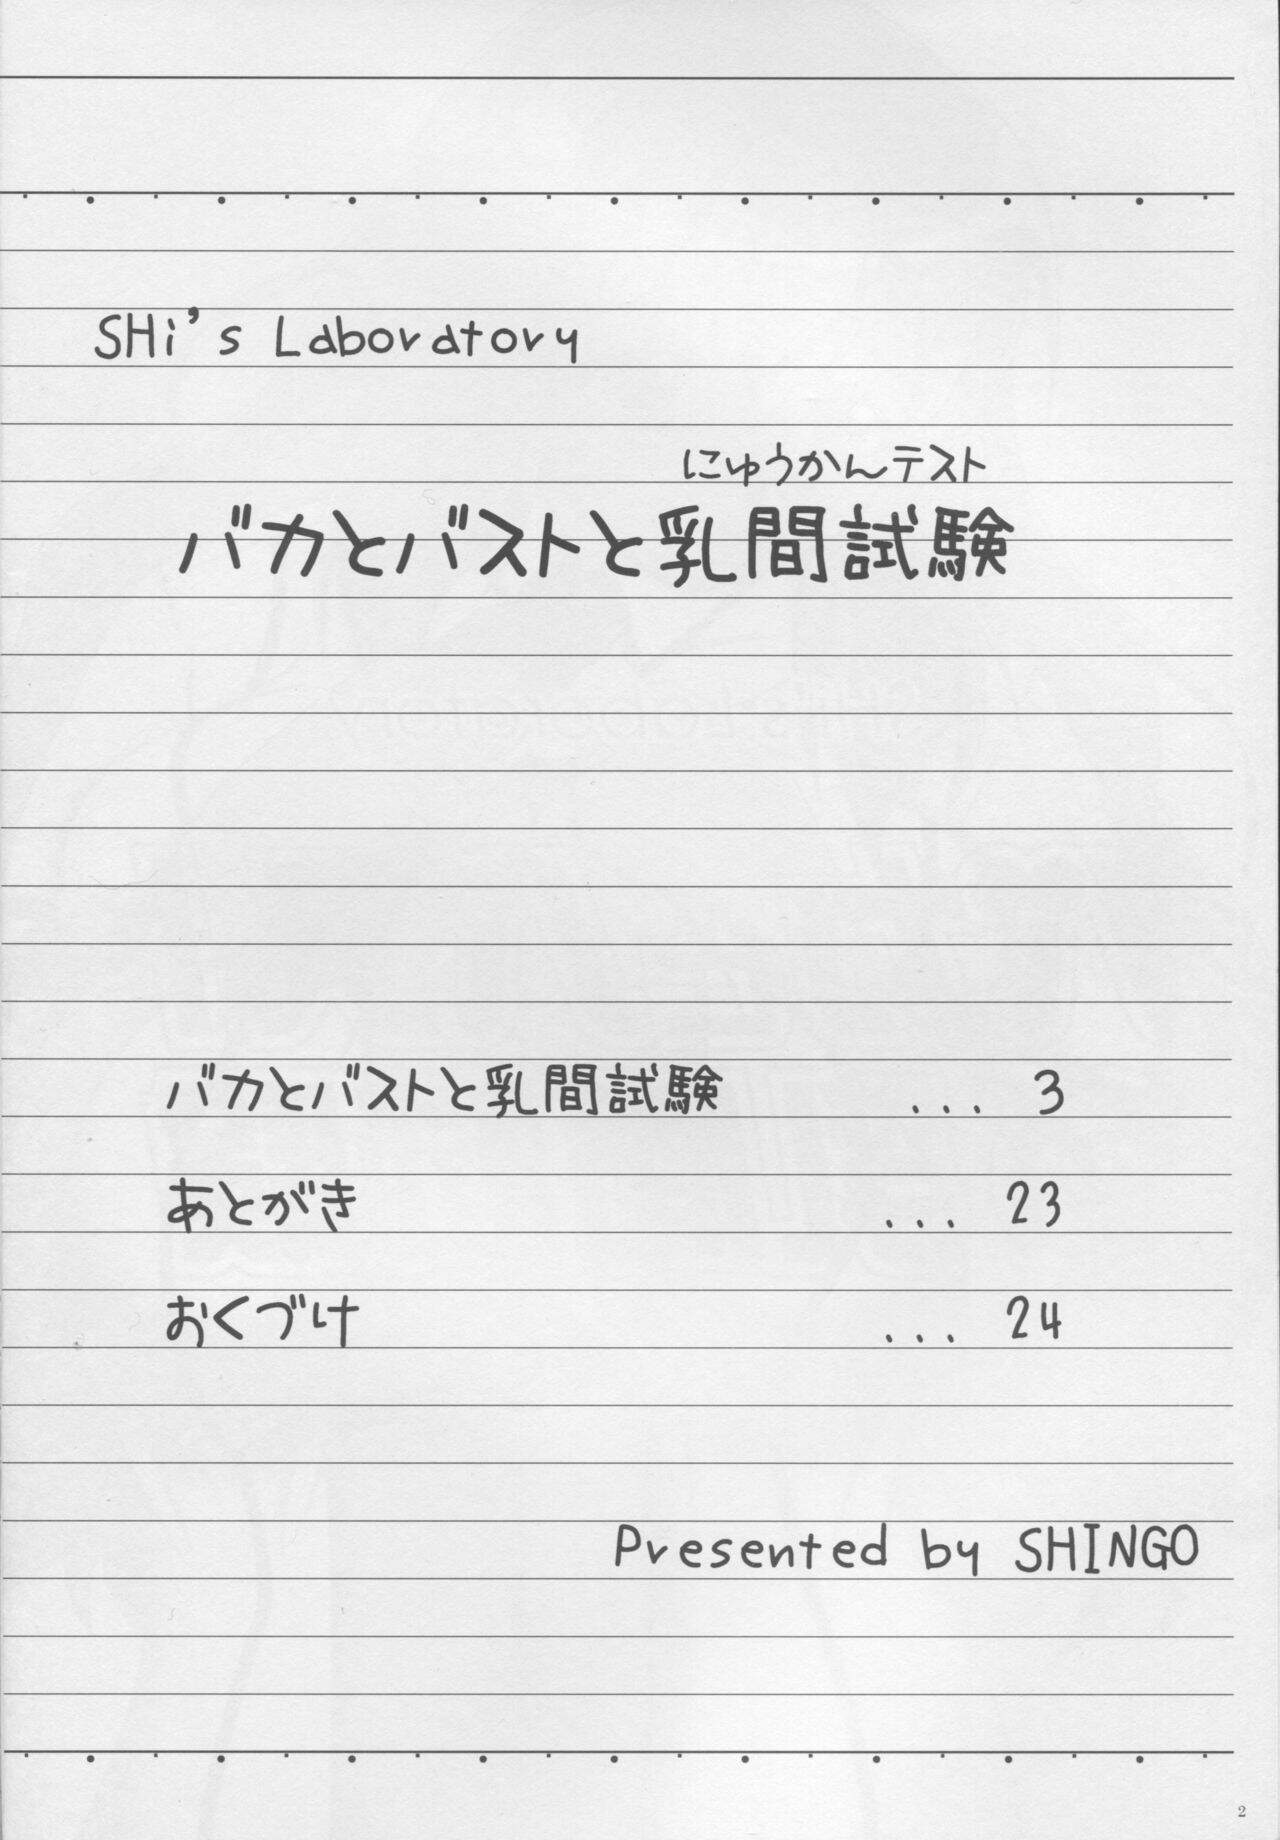 SHi's Laboratory
にゅうかんテスト
バカとバストと乳間試験
バカとバストと乳間試験 ... 3
あとがき ... 23
おくづけ ... 24
Presented by SHINGO
2